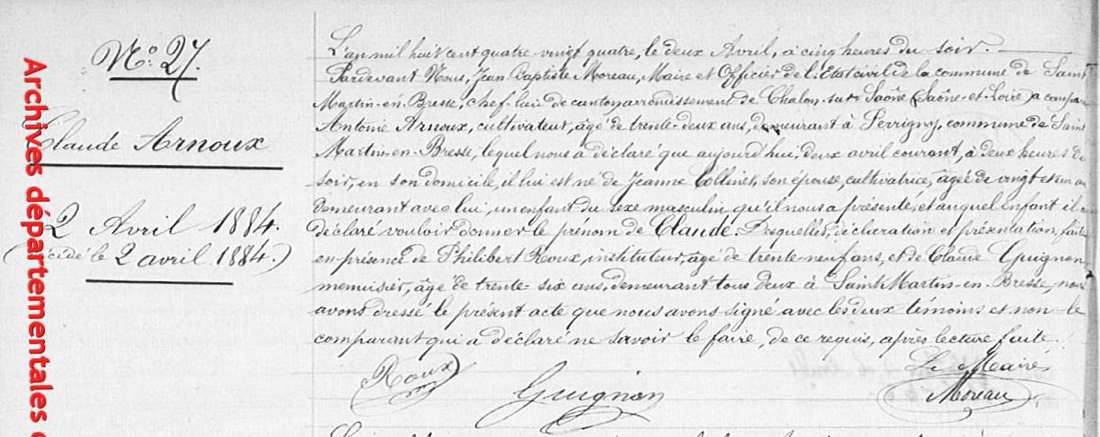 N° 27.
Claude Arnoux
2 Avril 1884.
(décédé le 2 avril 1884.)
L'an mil huit cent quatre vingt quatre, le deux Avril, à cinq heures du soir.
Pardevant Nous, Jean Baptiste Moreau, Maire et Officier de l'Etat civil de la commune de Saint
Martin-en-Bresse, chef-lieu de canton arrondissement de Chalon-sur-Saône (Saône-et-Loire) a compa
Antoine Arnoux, cultivateur, âgé de trente-deux ans, demeurant à Perrigny, commune de Saint
Martin-en-Bresse, lequel nous a déclaré que aujourd'hui, deux avril courant, à deux heures du
soir, en son domicile, il lui est né de Jeanne Collinet, son épouse, cultivatrice, âgée de vingt et un an
demeurant avec lui, un enfant du sexe masculin qu'il nous a présenté, et auquel enfant il a
déclaré vouloir donner le prénom de Claude. Desquelles déclaration et présentation, faite
en présence de Philibert Roux, instituteur, âgé de trente-neuf ans, et de Claude Guignon
menuisier, âgé de trente-six ans, demeurant tous deux à Saint-Martin-en-Bresse, nous
avons dressé le présent acte que nous avons signé avec les deux témoins et non le
comparant qui a déclaré ne savoir le faire, de ce requis, après lecture faite.
Le Maire
Roux
Guignon
Moreau
Archives départementales